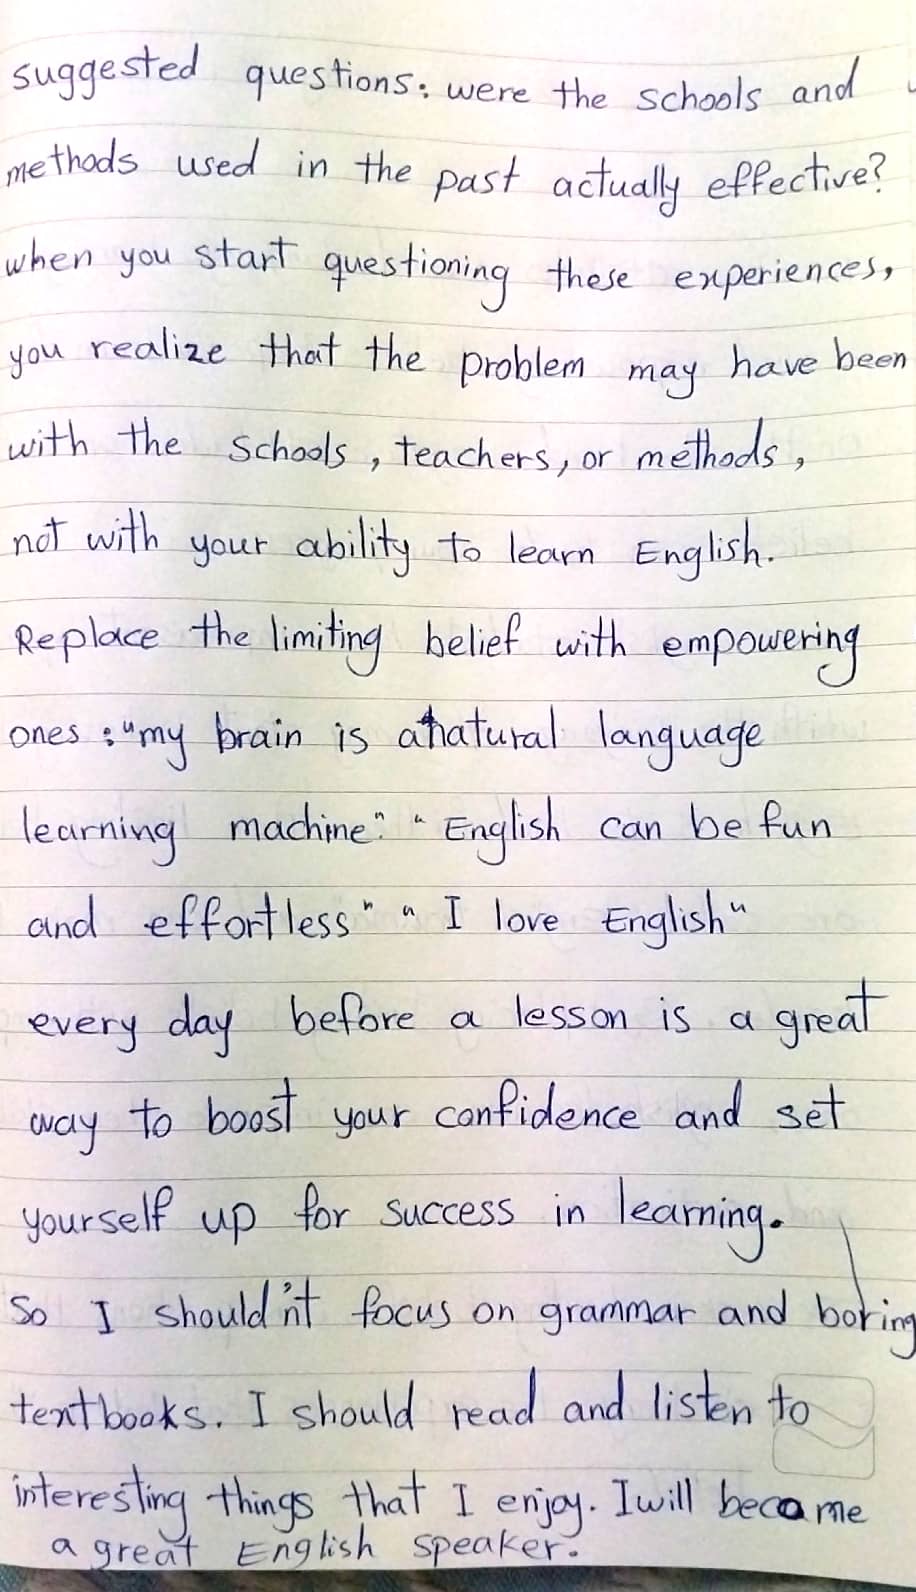 suggested questions: were the schools and
methods used in the past actually effective?
when you start questioning these experiences,
you realize that the problem may have been
with the schools, teachers, or methods,
not with your ability to learn English.
Replace the limiting belief with empowering
ones: "my brain is a natural language
learning machine". "English can be fun
and effortless" "I love English"
every day before a lesson is a great
way to boost your confidence and set
yourself up for success in learning.
So I should'nt focus on grammar and boring
textbooks. I should read and listen to
interesting things that I enjoy. I will become
a great English speaker.